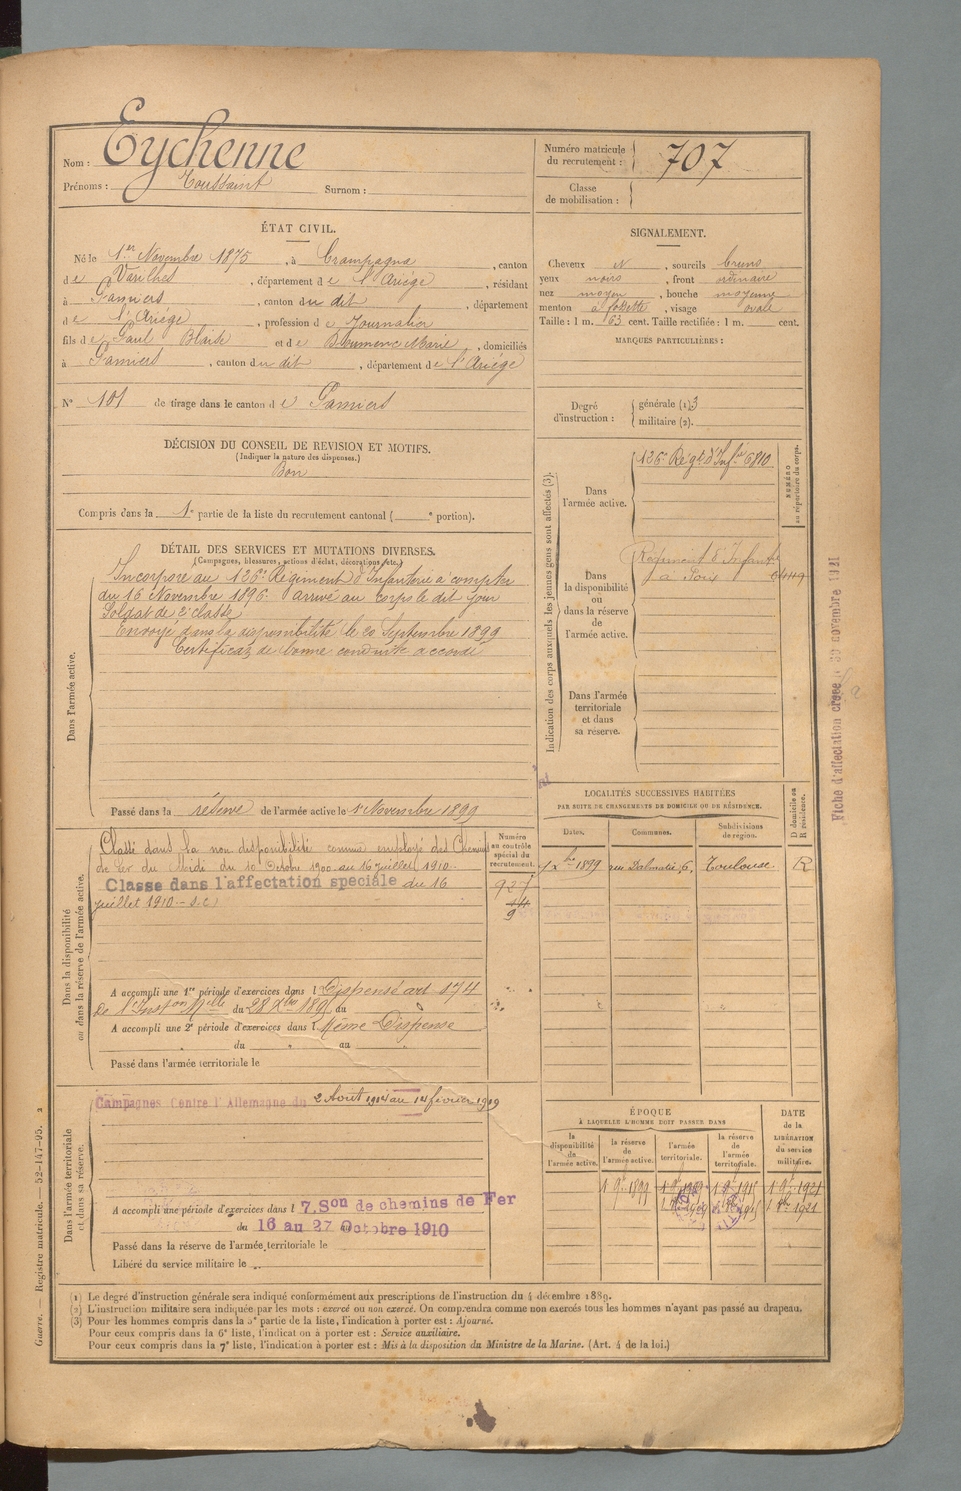 Nom : Eychenne
Prénoms : Toussaint Surnom :
Numéro matricule du recrutement : 707
Classe de mobilisation :
ÉTAT CIVIL.
Né le 1er Novembre 1875, à Crampagna, canton
de Varilhes, département de l'Ariège, résidant
à Pamiers, canton du dit, département
de l'Ariège, profession de Journalier
fils de Paul Blaise et de Doumenc Marie, domiciliés
à Pamiers, canton du dit, département de l'Ariège
N° 101 de tirage dans le canton de Pamiers
SIGNALEMENT.
Cheveux N, sourcils bruns
yeux noirs, front ordinaire
nez moyen, bouche moyenne
menton à fossette, visage ovale
Taille : 1 m. 63 cent. Taille rectifiée : 1 m. cent.
MARQUES PARTICULIÈRES :
Degré d'instruction : générale (1) 3
militaire (2).
DÉCISION DU CONSEIL DE REVISION ET MOTIFS.
(Indiquer la nature des dispenses.)
Bon
Compris dans la 1e partie de la liste du recrutement cantonal ( e portion).
DÉTAIL DES SERVICES ET MUTATIONS DIVERSES.
(Campagnes, blessures, actions d'éclat, décorations, etc.)
Dans l'armée active.
Incorporé au 126e Régiment d'Infanterie à compter
du 16 Novembre 1896. arrivé au corps le dit jour
Soldat de 2e classe
Envoyé dans la disponibilité le 20 Septembre 1899
Certificat de bonne conduite accordé
Passé dans la réserve de l'armée active le 1er Novembre 1899
Indication des corps auxquels les jeunes gens sont affectés (3).
NUMÉRO au répertoire du corps.
Dans l'armée active.
126e Régt d'Infie 6810
Dans la disponibilité ou dans la réserve de l'armée active.
Régiment d'Infant.
à Foix
Dans l'armée territoriale et dans sa réserve.
Fiche d'affectation créée 30 novembre 1921
Dans la disponibilité ou dans la réserve de l'armée active.
Numéro au contrôle spécial du recrutement.
Classé dans la non disponibilité comme employé des Chemins
de Fer du Midi du 10 Octobre 1900 au 16 juillet 1910.
Classe dans l'affectation spéciale du 16
juillet 1910
927
A accompli une 1re période d'exercices dans l Dispensé art 174
de l'Inston Mlle du 28 Xbre 1895 au
A accompli une 2e période d'exercices dans l Même Dispense
du " au "
Passé dans l'armée territoriale le
LOCALITÉS SUCCESSIVES HABITÉES
PAR SUITE DE CHANGEMENTS DE DOMICILE OU DE RÉSIDENCE.
Dates. Communes. Subdivisions de région. D domicile ou R résidence.
Xbre 1899 rue Dalmatie, 6, Toulouse R
Dans l'armée territoriale et dans sa réserve.
Campagnes Contre l'Allemagne du 2 Août 1914 au 14 février 1919
A accompli une période d'exercices dans l 7.Son de chemins de Fer
du 16 au 27 Octobre 1910
Passé dans la réserve de l'armée territoriale le
Libéré du service militaire le
ÉPOQUE
À LAQUELLE L'HOMME DOIT PASSER DANS
la disponibilité de l'armée active. la réserve de l'armée active. l'armée territoriale. la réserve de l'armée territoriale.
DATE de la LIBÉRATION du service militaire.
1 9e 1899 1 9e 1909 1 9e 1915 1 9e 1921
(1) Le degré d'instruction générale sera indiqué conformément aux prescriptions de l'instruction du 4 décembre 1889.
(2) L'instruction militaire sera indiquée par les mots : exercé ou non exercé. On comprendra comme non exercés tous les hommes n'ayant pas passé au drapeau.
(3) Pour les hommes compris dans la 5e partie de la liste, l'indication à porter est : Ajourné.
Pour ceux compris dans la 6e liste, l'indication à porter est : Service auxiliaire.
Pour ceux compris dans la 7e liste, l'indication à porter est : Mis à la disposition du Ministre de la Marine. (Art. 4 de la loi.)
Guerre. — Registre matricule. — 52-147-95. 2